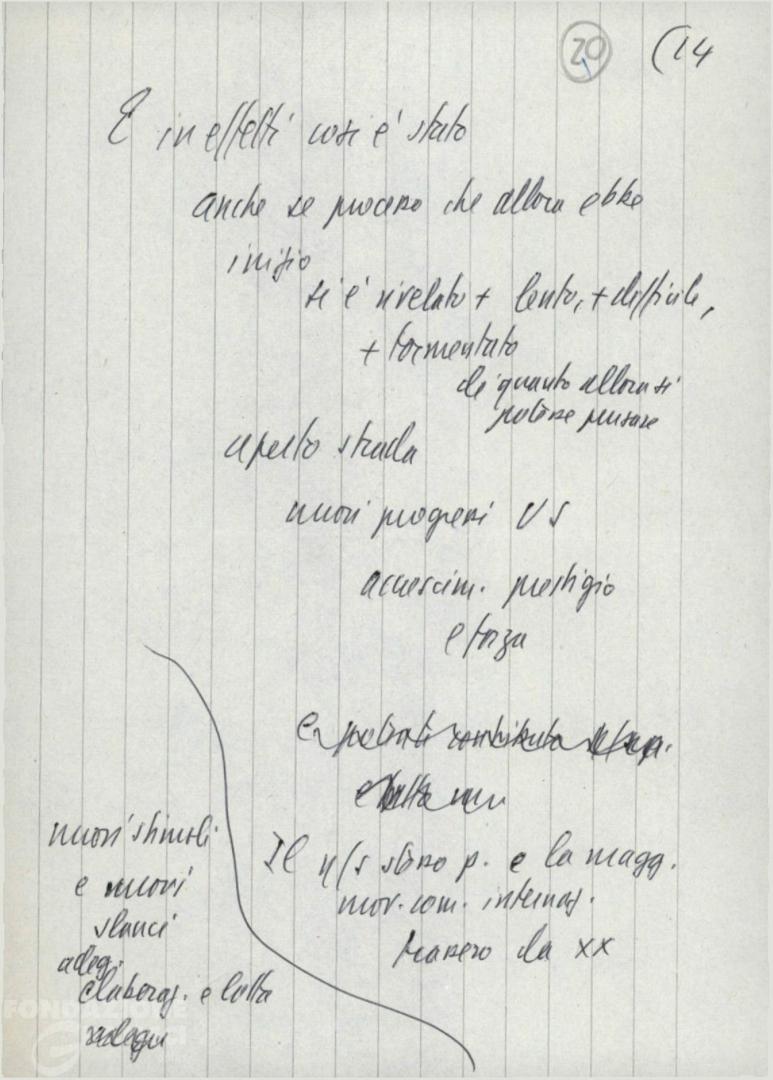 20 (14
E in effetti così è stato
anche se processo che allora ebbe
inizio
si è rivelato + lento, + difficile,
+ tormentato
di quanto allora si
potesse pensare
aperto strada
nuovi progressi US
accrescim. prestigio
e forza
e
e lotta
Il n/s stesso p. e la magg.
mov. com. internaz.
trassero da XX
nuovi stimoli
e nuovi
slanci
adeg.
elaboraz. e lotta
FONDAZIONE